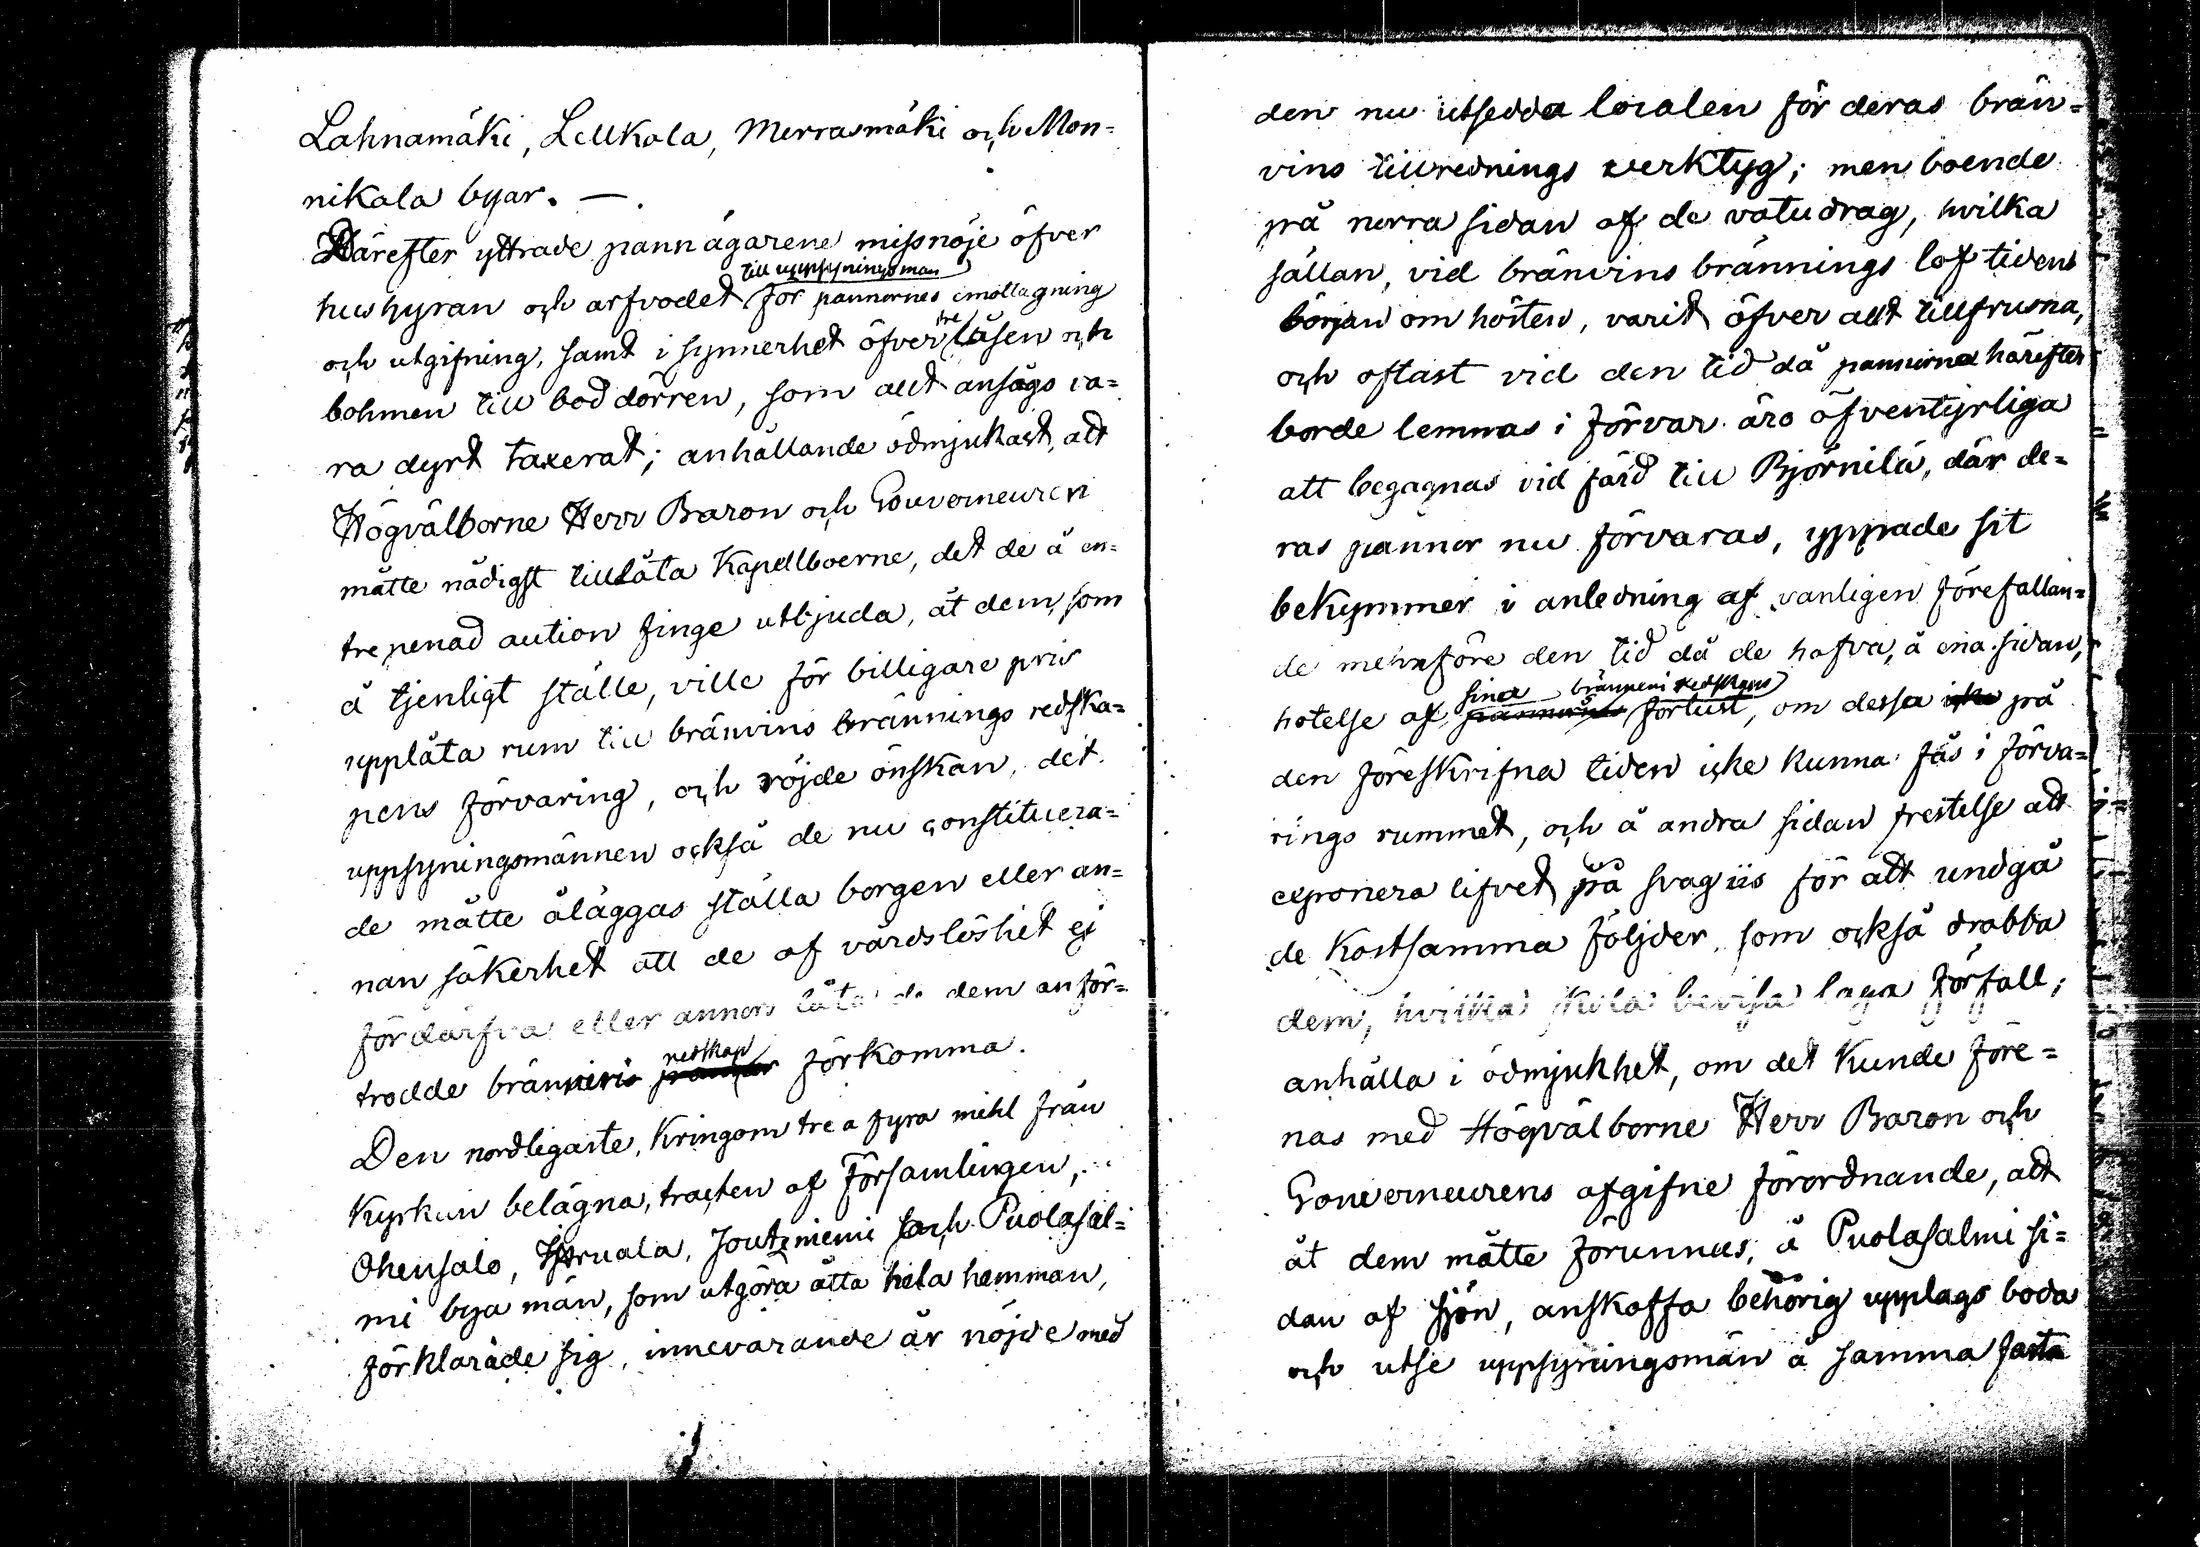 Lahnamäki, Lellkala, Merrasmäki och Mon=
nikala byar. —.
Därefter yttrade pannägarene missnöje öfver
till uppsyningsman
hushyran och arfvodet för pannornes emottagning
och utgifning, samt i synnerhet öfver tre låsen och
bohmen till boddörren, som allt ansågs va=
ra dyrt taxerat; anhållande ödmjukast, att
Högvälborne Herr Baron och Gouverneuren
måtte nådigst tillåta Kapellboerne, det de å en=
treprenad aution finge utbjuda, åt dem, som
å tjenligt ställe, ville för billigare pris
upplåta rum till bränvins brännings redska=
pens förvaring, och röjde önskan, det
uppsyningsmännen också de nu constituera=
de måtte åläggas ställa borgen eller an=
nan säkerhet att de af vårdslöshet ej
fördärfva eller annors låta de dem anför=
redskap
trodde bränneri pannor förkomma.
Den nordligaste, Kringom tre a fyra mihl från
Kyrkan belägna, tracten af Församlingen,
Ohensalo, Joutzniemi och Puolasal=
mi bya män, som utgöra åtta hela hemman,
förklarade sig, innevarande år nöjde med
den nu utsedda localen för deras brän=
vins tillrednings verktyg; men boende
på norra sidan af de vatudrag, hvilka
sällan, vid bränvins brännings lof tidens
början om hösten, varit öfver allt tillfrusna,
och oftast vid den tid då pannorna härefter
borde lemnas i förvar äro öfventyrliga
att begagnas vid färd till Björnilä, där de=
ras pannor nu förvaras, yppade sit
bekymmer i anledning af vanligen förefallan=
de menföre den tid då de hafva, å ena sidan,
sina bränneri redskaps
hotelse af pannornas förlust, om dessa icke på
den föreskrifna tiden icke kunna fås i förva=
rings rummet, och å andra sidan frestelse att
exponera lifvet på svag iis för att undgå
de Kostsamma följder, som också drabba
dem, hvilka skola bevisa laga förfall;
anhålla i ödmjukhet, om det Kunde före=
nas med Högvälborne Herr Baron och
Gouverneurens afgifne förordnande, att
åt dem måtte förunnas, å Puolasalmi si=
dan af sjön, anskaffa behörig upplags boda
och utse uppsyningsmän å samma fasta